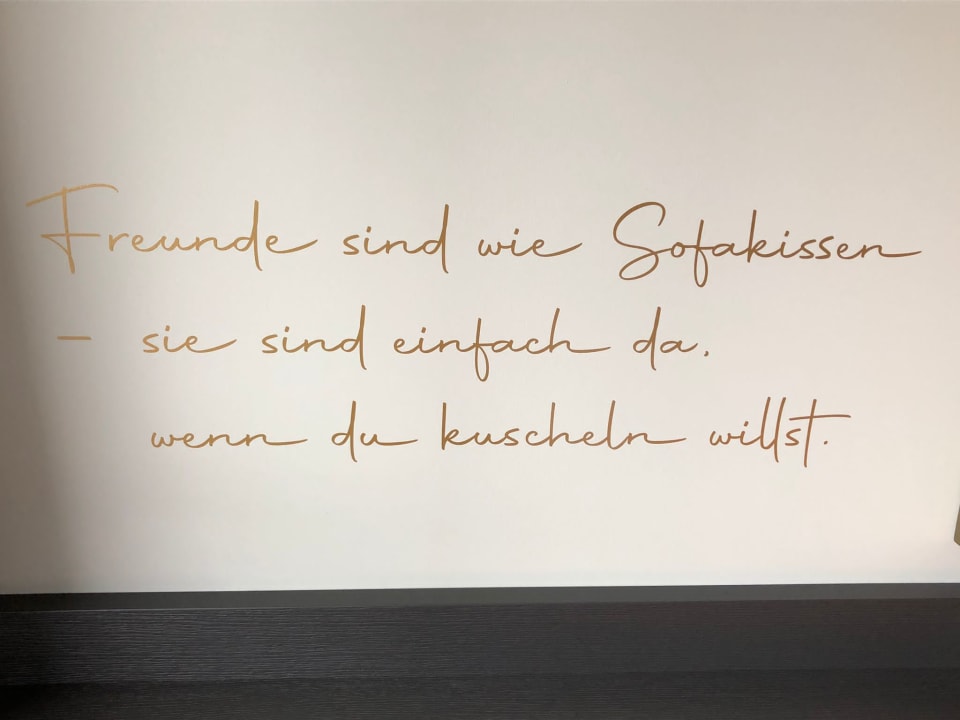 Freunde sind wie Sofakissen
– sie sind einfach da,
wenn du kuscheln willst.